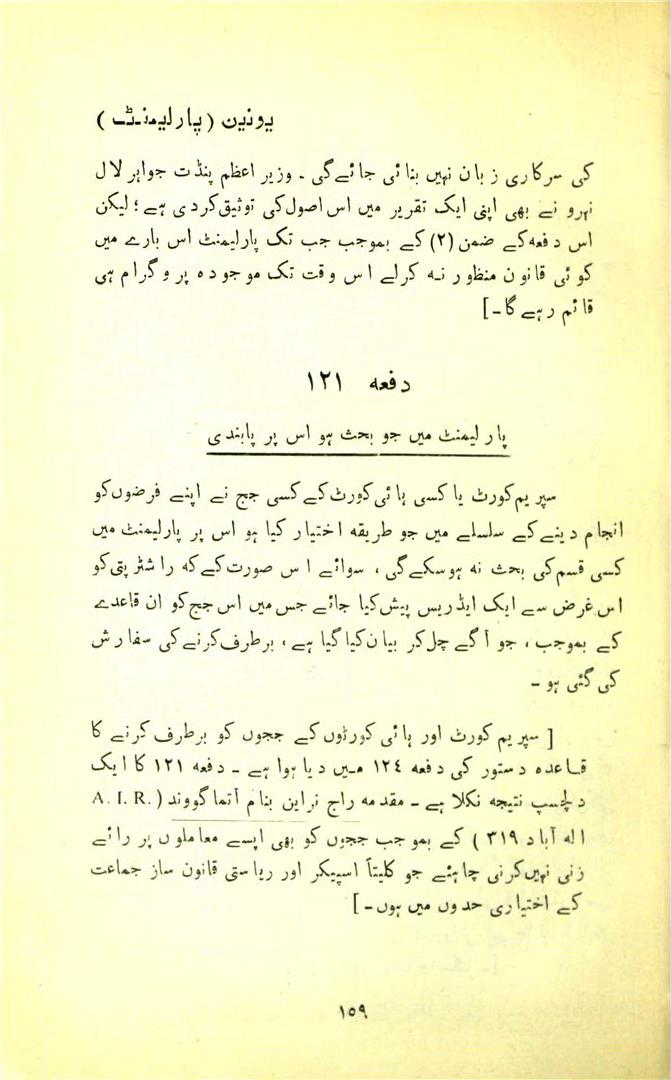 یونین (پارلیمنٹ)
کی سرکاری زبان نہیں بنائی جائے گی ۔ وزیر اعظم پنڈت جواہر لال
نہرو نے بھی اپنی ایک تقریر میں اس اصول کی توثیق کردی ہے ؛ لیکن
اس دفعہ کے ضمن (۲) کے بموجب جب تک پارلیمنٹ اس بارے میں
کوئی قانون منظور نہ کرلے اس وقت تک موجودہ پروگرام ہی
قائم رہے گا ۔ ]
دفعہ ۱۲۱
پارلیمنٹ میں جو بحث ہو اس پر پابندی
سپریم کورٹ یا کسی ہائی کورٹ کے کسی جج نے اپنے فرضوں کو
انجام دینے کے سلسلے میں جو طریقہ اختیار کیا ہو اس پر پارلیمنٹ میں
کسی قسم کی بحث نہ ہوسکے گی ، سوائے اس صورت کے کہ راشٹرپتی کو
اس غرض سے ایک ایڈریس پیش کیا جائے جس میں اس جج کو ان قاعدے
کے بموجب ، جو آگے چل کر بیان کیا گیا ہے ، برطرف کرنے کی سفارش
کی گئی ہو ۔
[ سپریم کورٹ اور ہائی کورٹوں کے ججوں کو برطرف کرنے کا
قاعدہ دستور کی دفعہ ۱۲٤ میں دیا ہوا ہے ۔ دفعہ ۱۲۱ کا ایک
دلچسپ نتیجہ نکلا ہے ۔ مقدمہ راج نراین بنام آتما گووند ( A. I. R.
الہ آباد ۳۱۹ ) کے بموجب ججوں کو بھی ایسے معاملوں پر رائے
زنی نہیں کرنی چاہئے جو کلیتاً اسپیکر اور ریاستی قانون ساز جماعت
کے اختیاری حدوں میں ہوں ۔ ]
۱۵۹